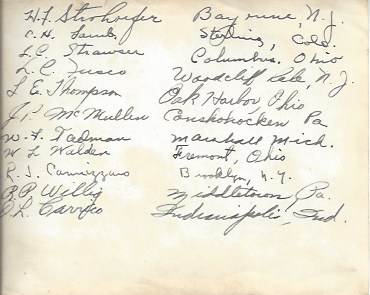 H.F. Strohoefer Bayonne, N.J.
C.H. Lamb Sterling, Colo.
L.C. Strawser Columbus, Ohio
L.C. Fusco Woodcliff Lake, N.J.
L.E. Thompson Oak Harbor, Ohio
J.P. McMullen Conshohocken Pa
W.F. Tadman Marshall Mich.
W L Walden Fremont, Ohio
R.J. Cannizzaro Brooklyn, N.Y.
R.P. Willig Middletown, Pa.
O.L. Carrico Indianapolis, Ind.